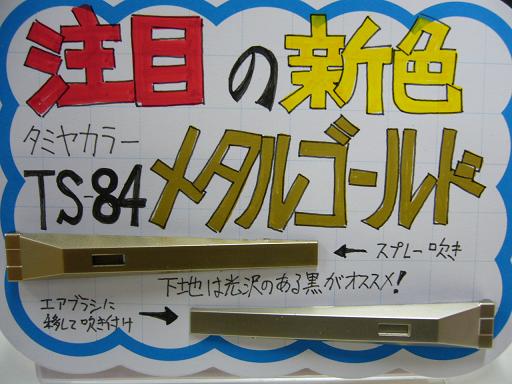 注目の新色
タミヤカラー
TS-84 メタルゴールド
← スプレー吹き
下地は光沢のある黒がオススメ!
エアブラシに
移して吹き付け →